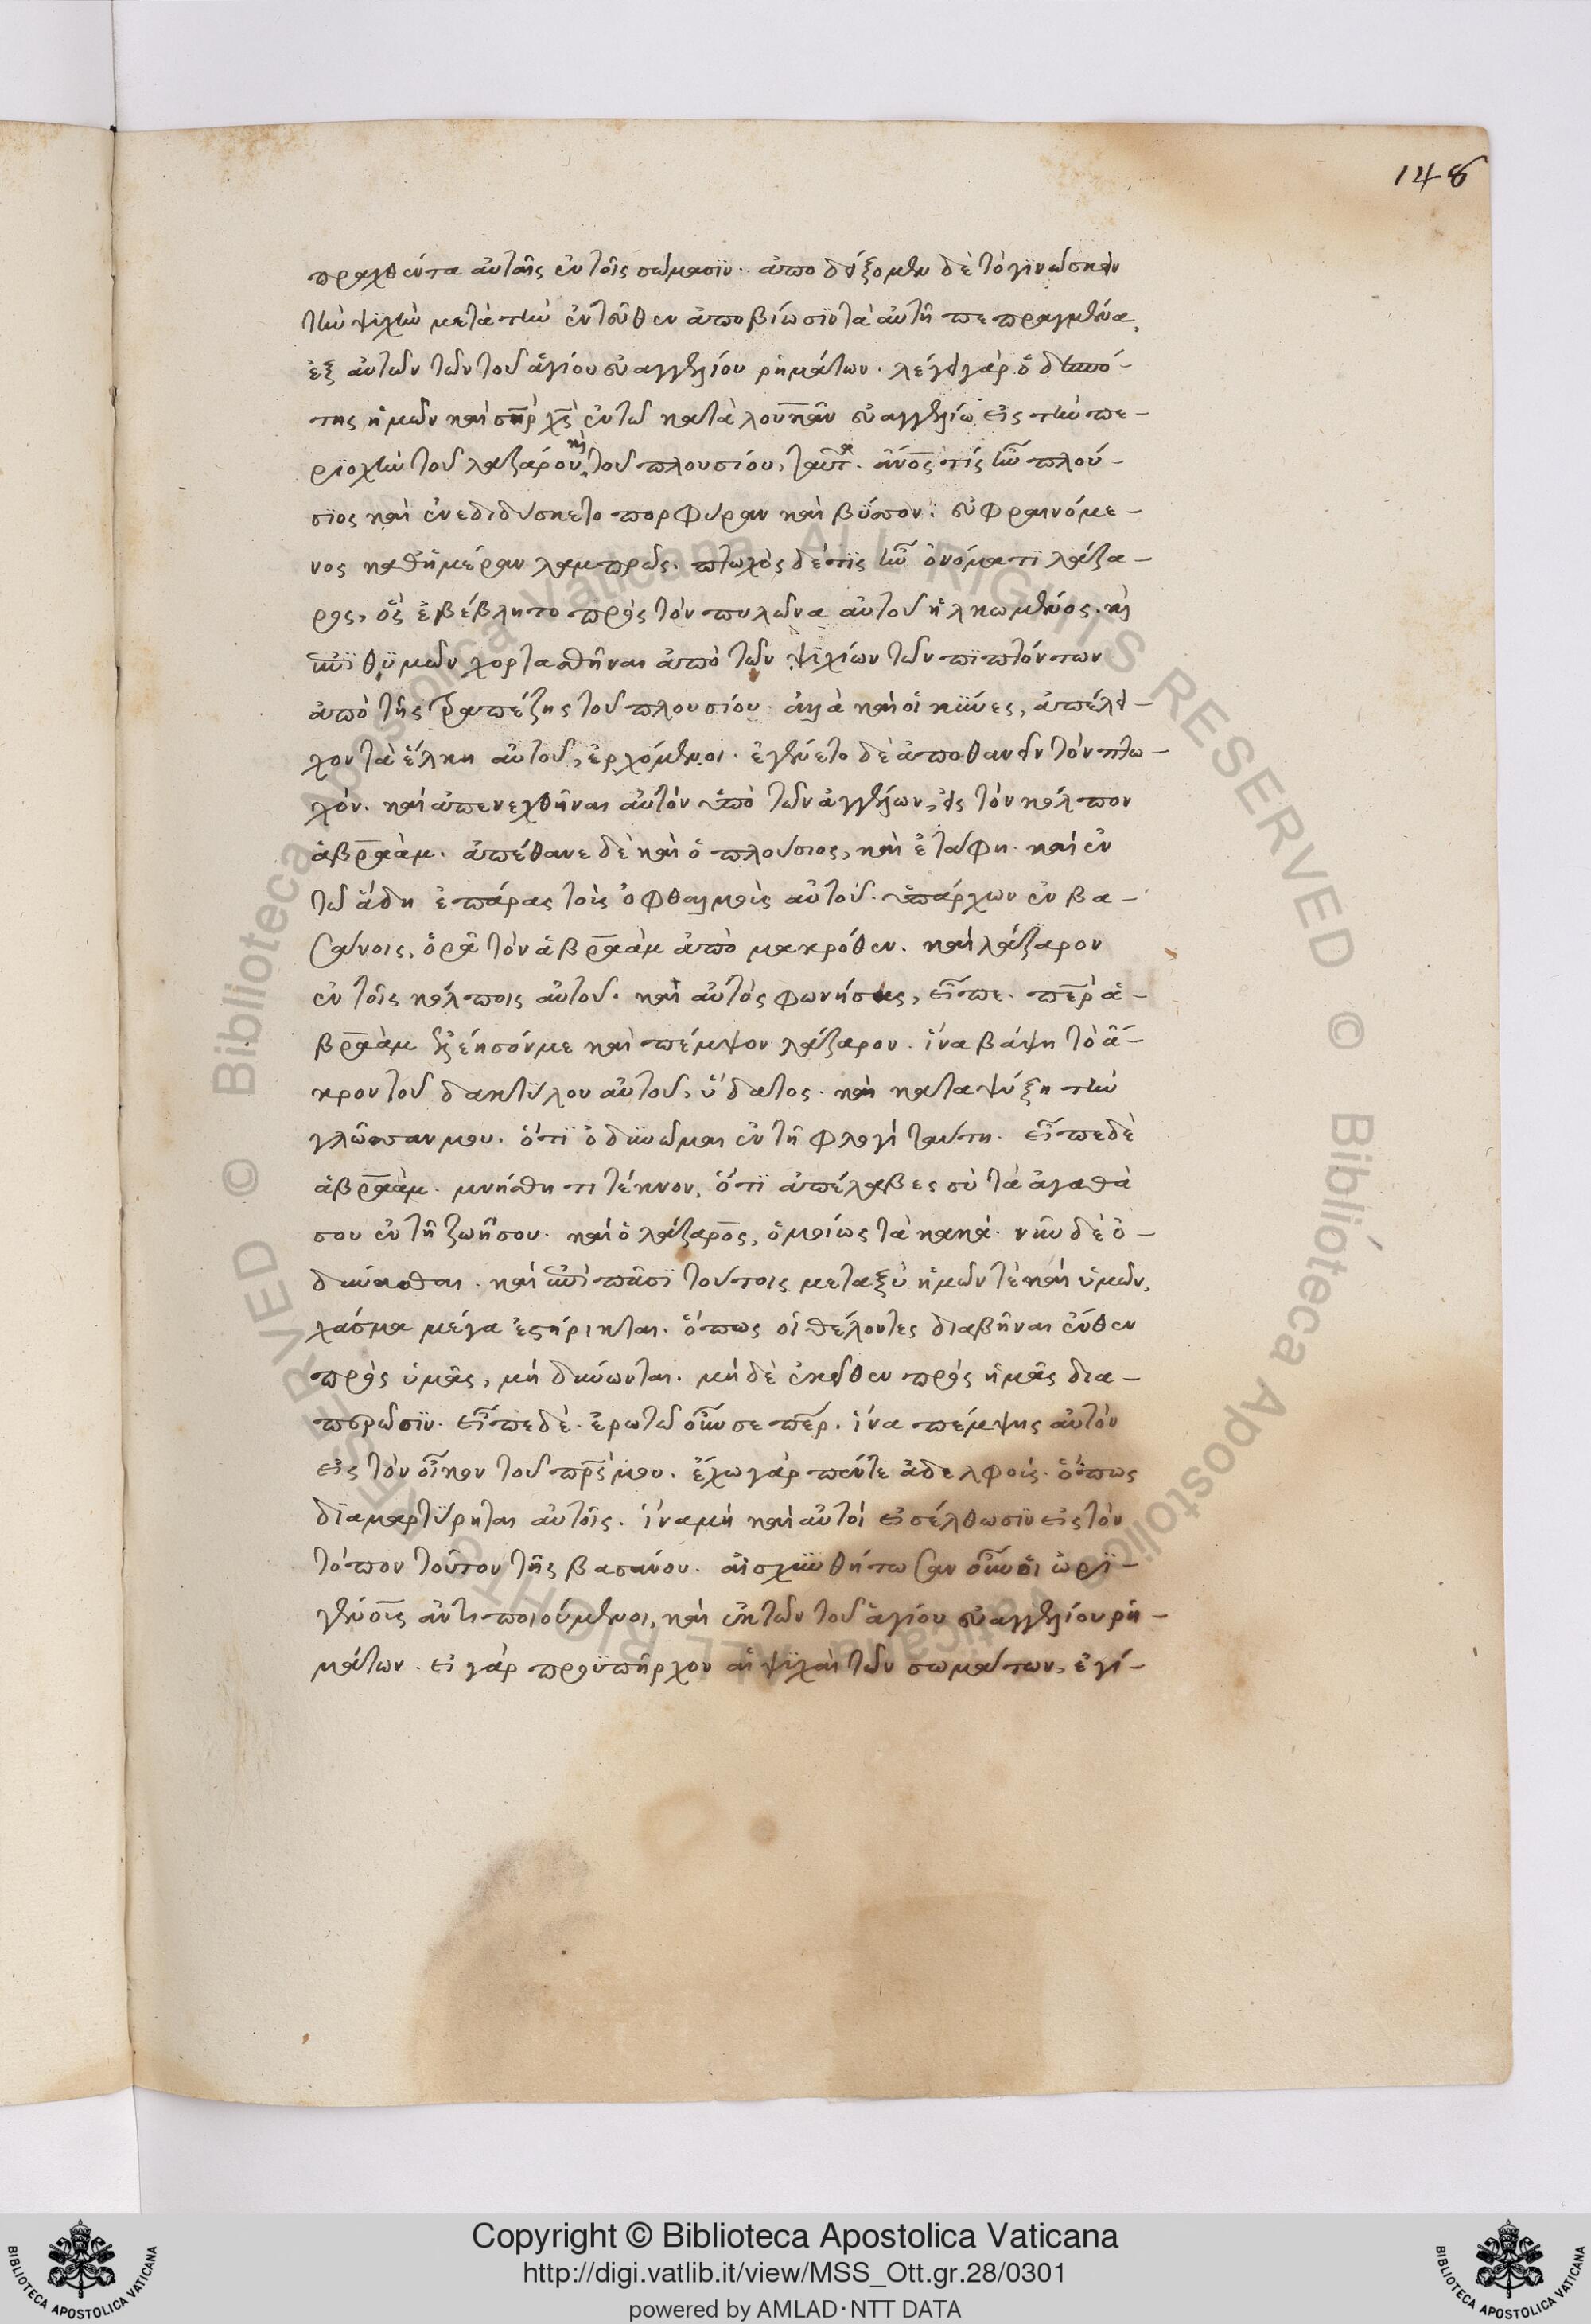 148
πραχθέντα αὐταῖς ἐν τοῖς σώμασϊν. ἀποδείξομεν δὲ τὸ γινώσκειν
τὴν ψϋχὴν μετὰ τὴν ἐντεῦθεν ἀποβίωσϊν τὰ αὐτῆ πεπραγμένα,
ἐξ αὐτῶν τῶν τοῦ ἁγίου εὐαγγελίου ρημάτων. λέγει γὰρ ὁ δεσπό-
της ἡμῶν καὶ σηρ χς ἐν τῶ κατὰ λουκᾶν εὐαγγελίω εἰς τὴν πε-
ριοχὴν τοῦ λαζάρου κὶ τοῦ πλουσίου, ταῦτα. ἀνος τίς ἦν πλού-
σϊος καὶ ἐνεδιδύσκετο πορφύραν καὶ βύσσον. εὐφραινόμε-
νος καθ' ἡμέραν λαμπρῶς. πτωχὸς δέ τϊς ἦν ὀνόματϊ λάζα-
ρος, ὃς ἐβέβλητο πρὸς τὸν πυλῶνα αὐτοῦ ἡλκωμένος. κὶ
ἐπϊθϋμῶν χορτασθῆναι ἀπὸ τῶν ψϊχίων τῶν πϊπτόντων
ἀπὸ τῆς τραπέζης τοῦ πλουσίου. ἀλλὰ καὶ οἱ κϋνες, ἀπέλει-
χον τὰ ἕλκη αὐτοῦ, ἐρχόμενοι. ἐγένετο δὲ ἀποθανεῖν τὸν πτω-
χόν. καὶ ἀπενεχθῆναι αὐτὸν ὑπὸ τῶν ἀγγέλων, εἰς τὸν κόλπον
ἀβραὰμ. ἀπέθανε δὲ καὶ ὁ πλούσιος, καὶ ἐτάφη. καὶ ἐν
τῶ ἅδη ἐπάρας τοὺς ὀφθαλμοὺς αὐτοῦ. ὑπάρχων ἐν βα-
σάνοις, ὁρᾶ τὸν ἀβραὰμ ἀπὸ μακρόθεν. καὶ λάζαρον
ἐν τοῖς κόλποις αὐτοῦ. καὶ αὐτὸς φωνήσας, εἶπε. περ ἀ-
βραὰμ ἐλέησόν με καὶ πέμψον λάζαρον. ἵνα βάψη τὸ ἄ-
κρον τοῦ δακτύλου αὐτοῦ, ὕδατος. καὶ καταψύξη τὴν
γλῶσσαν μου. ὅτϊ ὀδϋνῶμαι ἐν τῆ φλογὶ ταύτη. εἶπε δὲ
ἀβραὰμ. μνήσθητι τέκνον, ὅτϊ ἀπέλαβες σὺ τὰ ἀγαθὰ
σου ἐν τῆ ζωῆ σου. καὶ ὁ λάζαρος, ὁμοίως τὰ κακά. νῦν δὲ ὀ-
δυνᾶσθαι. καὶ ἐπὶ πᾶσϊ τούτοις μεταξὺ ἡμῶν τὲ καὶ ὑμῶν,
χάσμα μέγα ἐστήρικται. ὅπως οἱ θέλοντες διαβῆναι ἔνθεν
πρὸς ὑμᾶς, μὴ δύνωνται. μὴ δὲ ἐκεῖθεν πρὸς ἡμᾶς δια-
περῶσϊν. εἶπε δὲ. ἐρωτῶ οὖν σε περ. ἵνα πέμψης αὐτὸν
εἰς τὸν οἶκον τοῦ πρς μου. ἔχω γὰρ πέντε ἀδελφούς. ὅπως
δϊαμαρτύρηται αὐτοῖς. ἵνα μὴ καὶ αὐτοὶ εἰσέλθωσϊν εἰς τὸν
τόπον τοῦτον τῆς βασάνου. αἰσχυνθήτωσαν οὖν οἱ ὠρϊ-
γένους ἀντιποιούμενοι, καὶ ἐκ τῶν τοῦ ἁγίου εὐαγγελίου ρη-
μάτων. εἰ γὰρ προϋπῆρχον αἱ ψϋχαὶ τῶν σωμάτων, ἐγί-
Copyright © Biblioteca Apostolica Vaticana
http://digi.vatlib.it/view/MSS_Ott.gr.28/0301
powered by AMLAD·NTT DATA